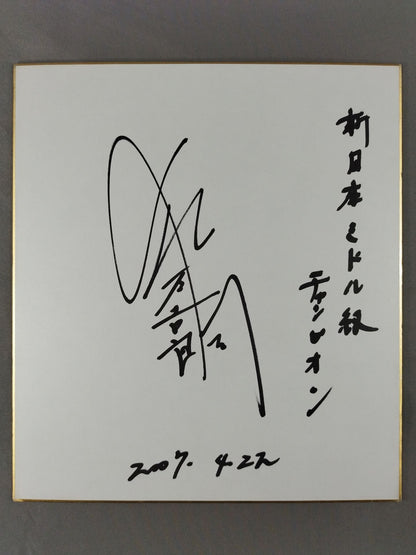 新日本ミドル級
チャンピオン
2007. 4.22